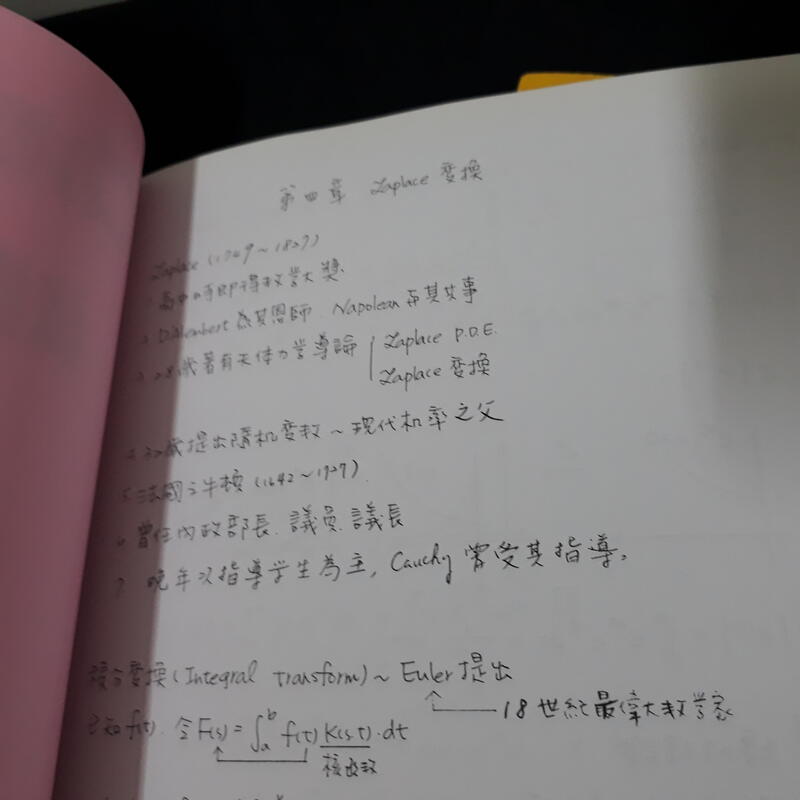 第四章 Laplace 变換
Laplace (1749~1827)
1. 高中時即得数学大獎.
2. D'Alembert 為其恩師. Napolean 與其共事
3. 28歲著有天体力学導論 Laplace P.D.E.
Laplace 变換
4. 歲提出隨机变数~現代机率之父
5. 法國之牛頓 (1642~1727).
6. 曾任內政部長. 議員. 議長
7. 晚年以指導学生為主, Cauchy 曾受其指導。
積分变換 (Integral transform) ~ Euler 提出
18世紀最偉大数学家
已知 f(t). 令 F(s) = ∫_a^b f(t) K(s,t)·dt
核函数